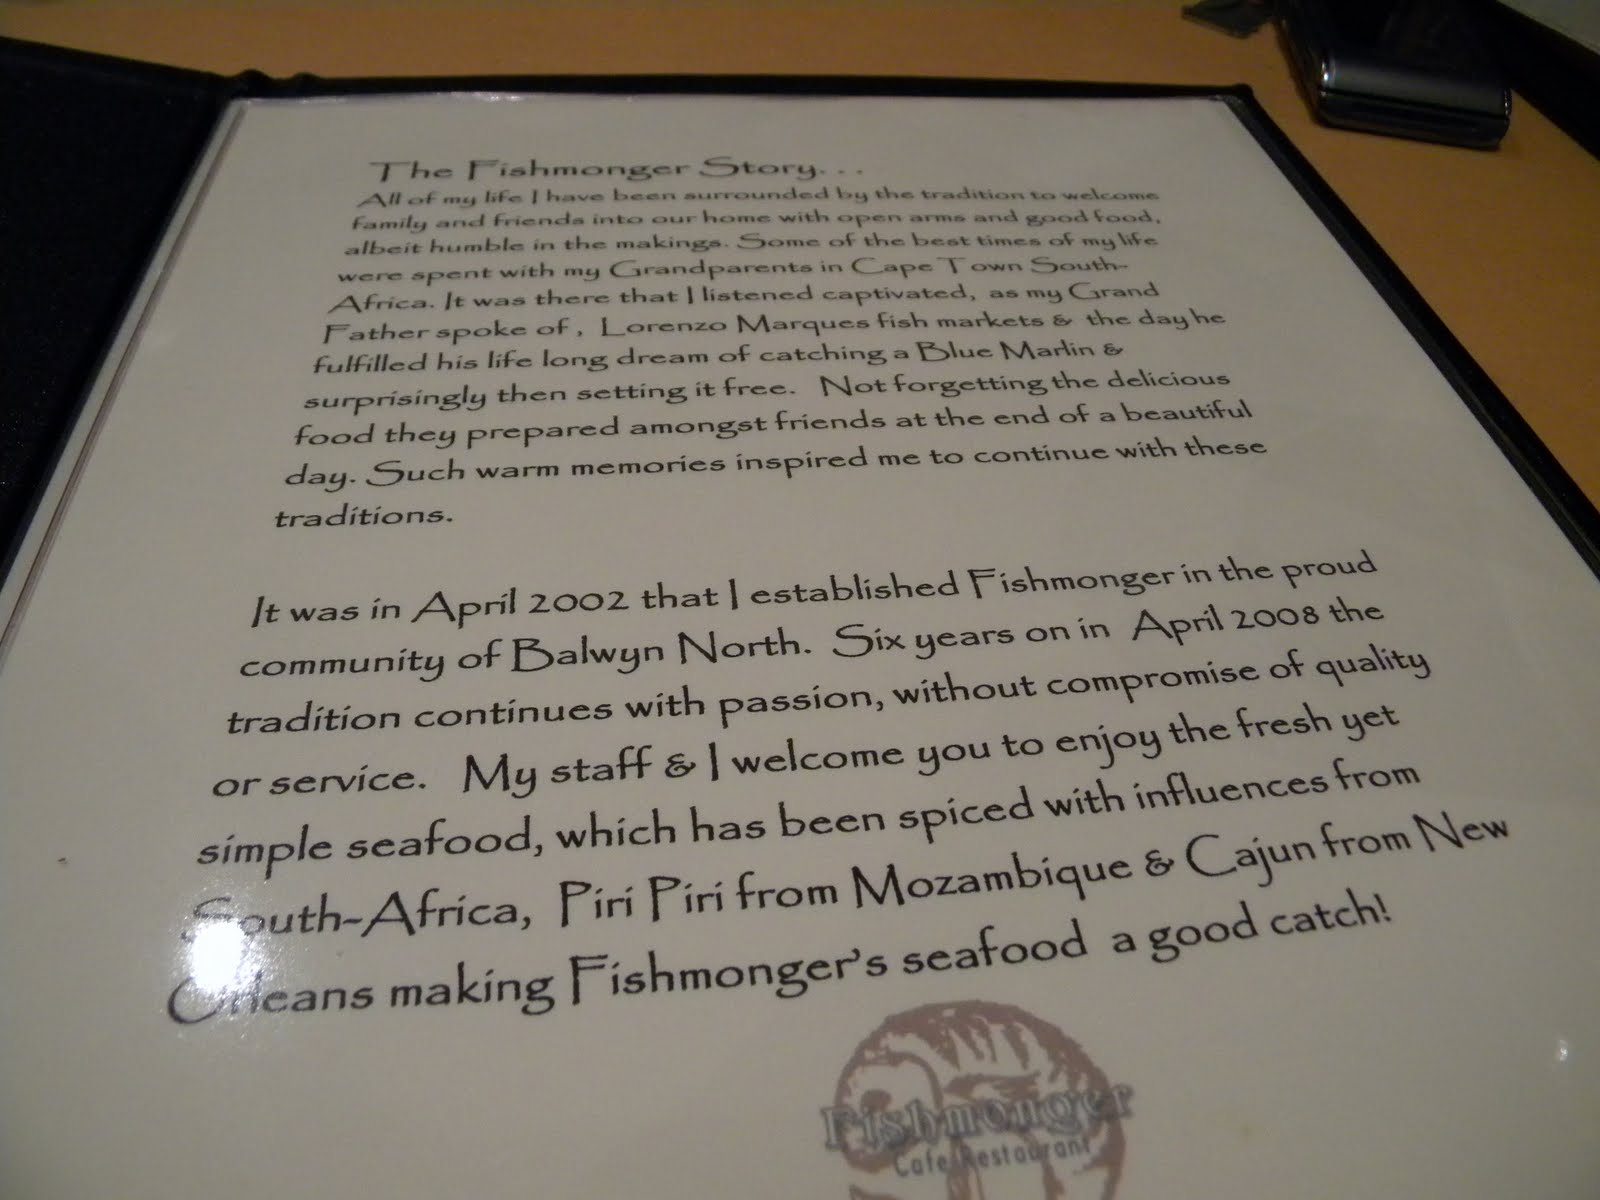 The Fishmonger Story. . .
All of my life I have been surrounded by the tradition to welcome
family and friends into our home with open arms and good food,
albeit humble in the makings. Some of the best times of my life
were spent with my Grandparents in Cape Town South-
Africa. It was there that I listened captivated, as my Grand
Father spoke of, Lorenzo Marques fish markets & the day he
fulfilled his life long dream of catching a Blue Marlin &
surprisingly then setting it free. Not forgetting the delicious
food they prepared amongst friends at the end of a beautiful
day. Such warm memories inspired me to continue with these
traditions.
It was in April 2002 that I established Fishmonger in the proud
community of Balwyn North. Six years on in April 2008 the
tradition continues with passion, without compromise of quality
or service. My staff & I welcome you to enjoy the fresh yet
simple seafood, which has been spiced with influences from
South-Africa, Piri Piri from Mozambique & Cajun from New
Orleans making Fishmonger's seafood a good catch!
Fishmonger
Cafe Restaurant